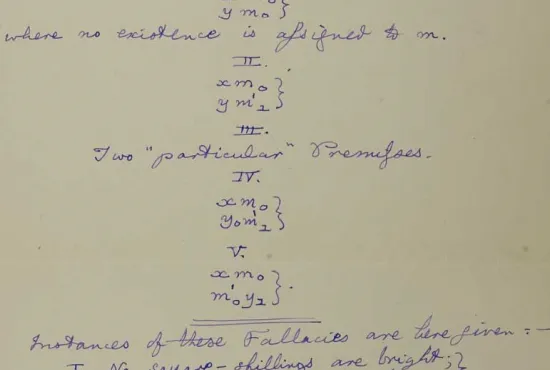 y m₀ }
where no existence is assigned to m.
II.
x m₀ }
y m'₁ }
III.
Two "particular" Premisses.
IV.
x m₀ }
y₀ m'₁ }
V.
x m₀ }
m'₀ y₁ } .
Instances of these Fallacies are here given :—
I. No square-shillings are bright; }